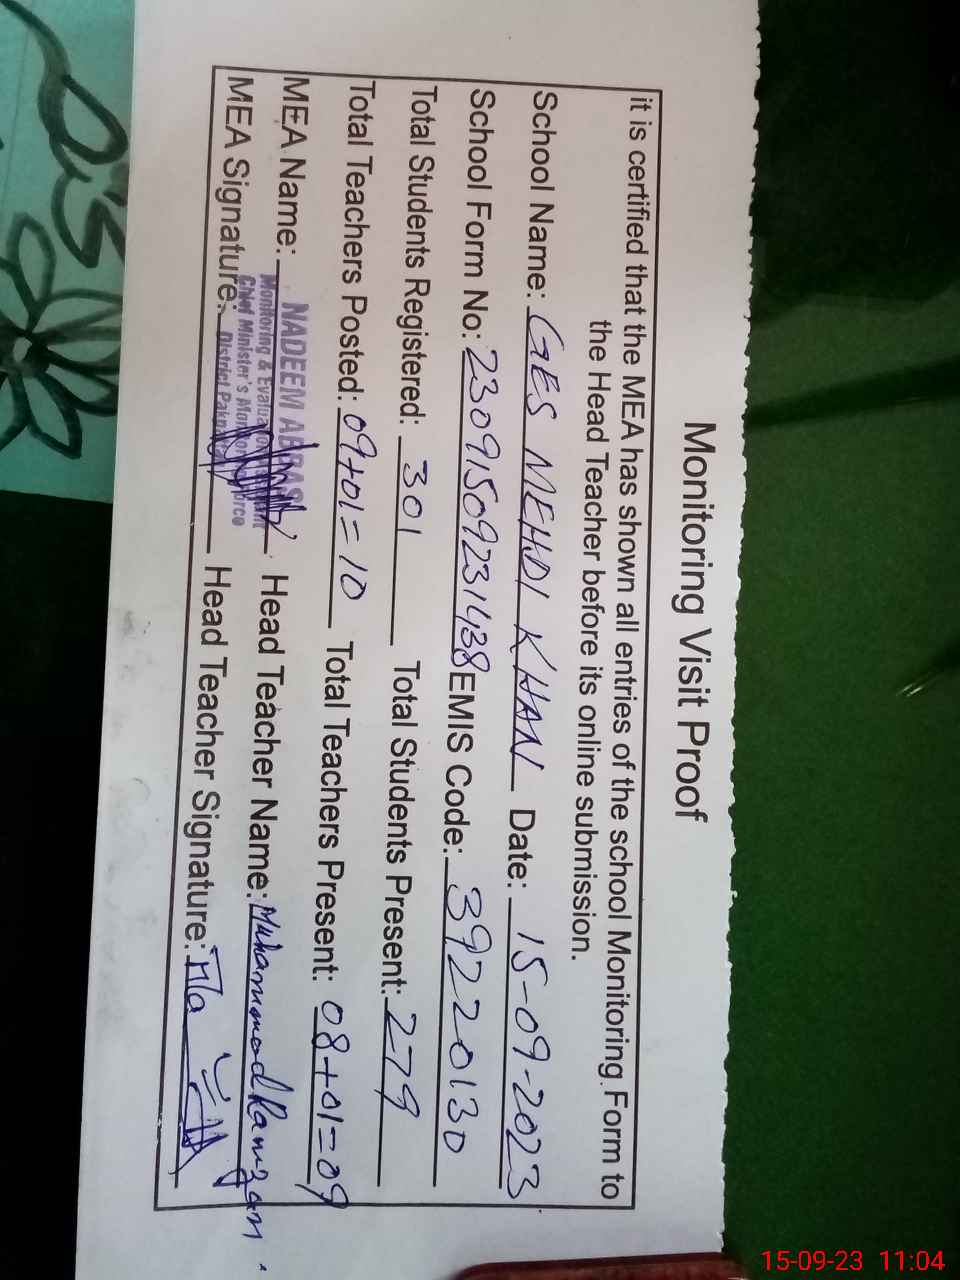 Monitoring Visit Proof
it is certified that the MEA has shown all entries of the school Monitoring Form to
the Head Teacher before its online submission.
School Name: GES MEHDI KHAN Date: 15-09-2023
School Form No: 23091509231438 EMIS Code: 39220130
Total Students Registered: 301 Total Students Present: 279
Total Teachers Posted: 09+01=10 Total Teachers Present: 08+01=09
MEA Name: NADEEM ABBAS Head Teacher Name: Muhammad Ramzan
Monitoring & Evaluation
Chief Minister's Monitoring Force
District Pakpattan
MEA Signature: Head Teacher Signature:
15-09-23 11:04